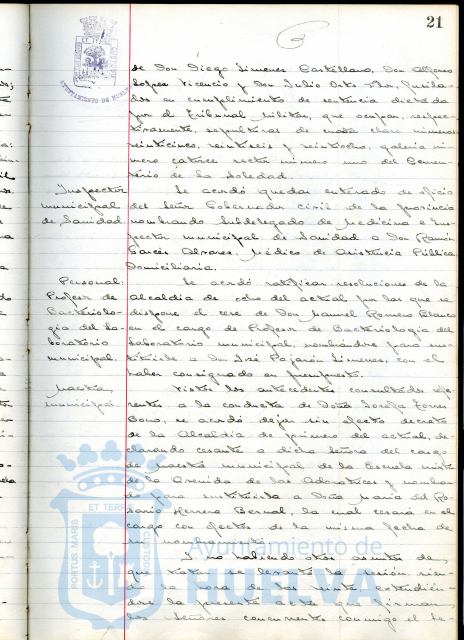 21
de Don Diego Jimenez Castellano, Don Alfonso
Lopez Vicencio y Don Julio Orts Flor, fusila-
dos en cumplimiento de sentencia dictada
por el Tribunal Militar, que ocupan, respec-
tivamente, sepulturas de cuarta clase numeros
veinticinco, veintiseis y veintiocho, galeria nu-
mero catorce sector numero uno del Cemen-
terio de la Soledad.
Inspector
municipal
de Sanidad
Se acordó quedar enterado de oficio
del Señor Gobernador Civil de la provincia
nombrando Subdelegado de Medicina e Ins-
pector municipal de Sanidad a Don Ramón
Garcés Alvarez, Médico de Asistencia Pública
Domiciliaria.
Personal:
Profesor de
Bacteriolo-
gia del La-
boratorio
municipal.
Se acordó ratificar resoluciones de la
Alcaldia de ocho del actual, por las que se
dispone el cese de Don Manuel Romero Blanco
en el cargo de Profesor de Bacteriologia del
Laboratorio municipal, nombrándose para sus-
tituirle a Don José Pajarón Jimenez, con el
haber consignado en presupuesto.
Maestra
municipal.
Vistos los antecedentes consultados refe-
rentes a la conducta de Doña Josefa Torres
Bono, se acordó dejar sin efecto decreto
de la Alcaldia de primero del actual, de-
clarando cesante a dicha señora del cargo
de maestra municipal de la Escuela mixta
de la Avenida de las Adoratrices y nombran-
do para sustituirla a Doña Maria del Ro-
sario Herrera Bernal, la cual cesará en el
cargo con efectos de la misma fecha de
su nombramiento.
Y no habiendo otros asuntos de
que tratar se levantó la sesión sien-
do la hora de las veinte, extendien-
dose la presente acta que firman
los Señores concurrentes conmigo el Se-
AYUNTAMIENTO DE HUELVA
PORTUS MARIS
ET TERRAE
CUSTODIA
Ayuntamiento de
HUELVA